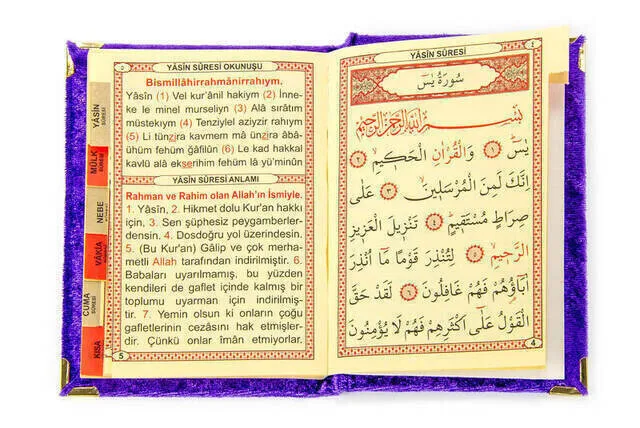 YÂSİN SÛRESİ
٤
سُورَةُ يٰسٓ
بِسْمِ اللّٰهِ الرَّحْمٰنِ الرَّحِيمِ
يٰسٓ ﴿١﴾ وَالْقُرْاٰنِ الْحَكِيمِ ﴿٢﴾
اِنَّكَ لَمِنَ الْمُرْسَلِينَ ﴿٣﴾ عَلٰى
صِرَاطٍ مُسْتَقِيمٍ ﴿٤﴾ تَنْزِيلَ الْعَزِيزِ
الرَّحِيمِ ﴿٥﴾ لِتُنْذِرَ قَوْمًا مَٓا اُنْذِرَ
اٰبَٓاؤُ۬هُمْ فَهُمْ غَافِلُونَ ﴿٦﴾ لَقَدْ حَقَّ
الْقَوْلُ عَلٰٓى اَكْثَرِهِمْ فَهُمْ لَا يُؤْمِنُونَ
4
YÂSİN SÛRESİ OKUNUŞU
٥
Bismillâhirrahmânirrahıym.
Yâsîn (1) Vel kur'ânil hakiym (2) İnne-
ke le minel murseliyn (3) Alâ sırâtım
müstekıym (4) Tenziylel aziyzir rahıym
(5) Li tünzira kavmem mâ ünzira âbâ-
ühüm fehüm ğâfilûn (6) Le kad hakkal
kavlü alâ ekserihim fehüm lâ yü'minûn
YÂSİN SÛRESİ ANLAMI
Rahman ve Rahim olan Allah'ın İsmiyle.
1. Yâsîn, 2. Hikmet dolu Kur'an hakkı
için, 3. Sen şüphesiz peygamberler-
densin. 4. Dosdoğru yol üzerindesin.
5. (Bu Kur'an) Gâlip ve çok merha-
metli Allah tarafından indirilmiştir. 6.
Babaları uyarılmamış, bu yüzden
kendileri de gaflet içinde kalmış bir
toplumu uyarman için indirilmiş-
tir. 7. Yemin olsun ki onların çoğu
gafletlerinin cezasını hak etmişler-
dir. Çünkü onlar iman etmiyorlar.
5
YÂSİN
SÛRESİ
MÜLK
SÛRESİ
NEBE
VÂKIA
CUMA
SÛRESİ
KISA